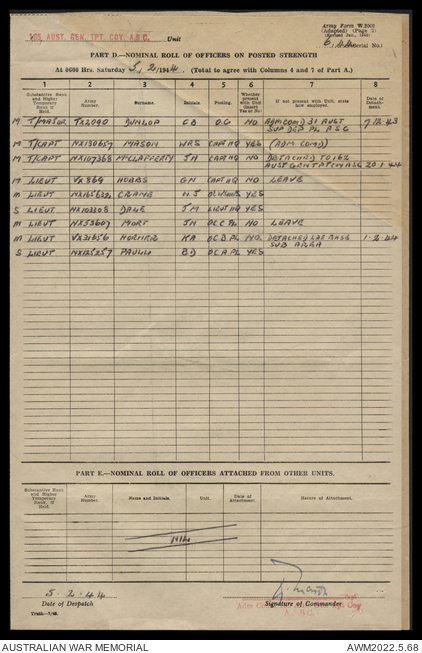 Army Form W.3000
(Adapted) (Page 3)
AUST. GEN. TPT. COY. A.S.C. Unit
PART D.—NOMINAL ROLL OF OFFICERS ON POSTED STRENGTH
At 0600 Hrs. Saturday 5.2.1944. (Total to agree with Columns 4 and 7 of Part A.)
1 2 3 4 5 6 7 8
Substantive Rank and Higher Temporary Rank if Held. Army Number. Surname. Initials. Posting. Whether present with Unit (insert Yes or No) If not present with Unit, state how employed. Date of Detachment.
M T/MAJOR TX2090 DUNLOP CB O.C NO ADM COMD 31 AUST 7.12.43
SUP DEP PL A.S.C
M T/CAPT MASON WRS CAPT HQ YES (ADM COMD)
M T/CAPT NX107368 McCLAFFERTY JH CAPT HQ NO DETACHED TO 162
AUST GEN TPT COY ASC 20.1.44
M LIEUT VX869 HOBBS GN CAPT HQ NO LEAVE
M LIEUT CRANE YES
S LIEUT DALE JM LIEUT HQ YES
M LIEUT NX53607 MORT JH OC C PL NO LEAVE
M LIEUT VX31656 KA OC B PL NO DETACHED LAE BASE 1-2-44
SUB AREA
S LIEUT BD OC A PL YES
PART E.—NOMINAL ROLL OF OFFICERS ATTACHED FROM OTHER UNITS.
Substantive Rank and Higher Temporary Rank if Held. Army Number. Name and Initials. Unit. Date of Attachment. Nature of Attachment.
Nil
5.2.44
Date of Despatch Signature of Commander
AUSTRALIAN WAR MEMORIAL AWM2022.5.68